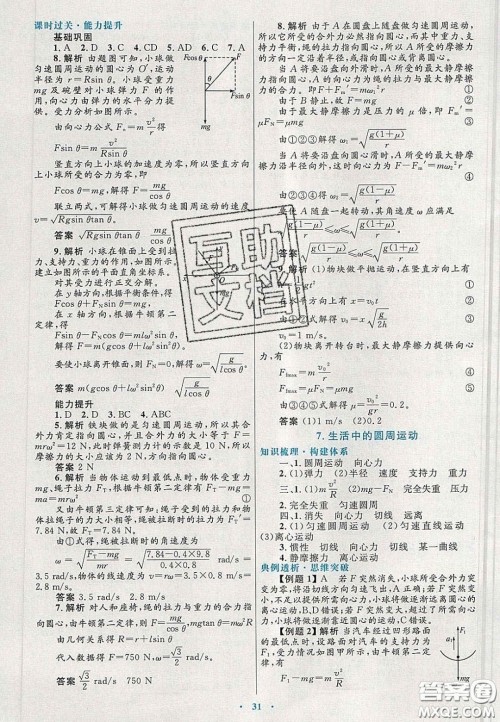 课时过关·能力提升
基础巩固
1. A 2. D 3. C 4. C 5. A 6. C 7. A
8. 解析 由题图可知,小球做
匀速圆周运动的圆心为O′,运动
半径为r=Rsin θ,小球所受重力
mg及碗壁对小球弹力F的合力
提供向心力,弹力的水平分力提供。
受力分析如图所示。
Fcos θ F
Fsin θ
mg
由向心力公式Fn=m v²/r得
Fsin θ=m v²/(Rsin θ) ①
竖直方向上小球的加速度为零,所以竖直方向
上小球所受的合力为零,即
Fcos θ=mg,解得F=mg/cos θ ②
联立两式,可解得小球做匀速圆周运动的速度
v=√(Rgsin θtan θ)
答案 √(Rgsin θtan θ)
9. 解析 小球在锥面上受到拉
力、支持力、重力的作用,如图所示。
建立如图所示的平面直角坐标系。
对其受力进行正交分解。
在y轴方向,根据平衡条件,得
Fcos θ+FNsin θ=mg
在x轴方向,根据牛顿第二
定律,得
Fsin θ-FNcos θ=mlω²sin θ
解得F=m(gcos θ+lω²sin²θ)
要使小球离开锥面,则FN=0,解得ω=√(g/(lcos θ))
答案 m(gcos θ+lω²sin²θ) √(g/(lcos θ))
能力提升
1. A 2. D 3. BC 4. ABC
5. 解析 铁块做的是匀速圆周运动,故铁块所受
的合外力提供向心力,并且合外力的大小等于F=
mω²r=10 N,此时弹簧测力计的示数为8 N,所以
摩擦力大小为2 N。
答案 2 N
6. 解析 当物体运动到最低点时,物体受重力
mg、绳子拉力FT,根据牛顿第二定律有FT-mg=
ma=0 ①
又由牛顿第三定律可知,绳子受到的拉力和绳
子拉物体的力大小相等,绳子被拉断时受到的拉力为
FT′=7.84 N,故FT=7.84 N。
由①式得,绳子被拉断时物体的角速度为
ω=√((FT-mg)/ml)=√((7.84-0.4×9.8)/(0.4×0.8)) rad/s=
3.5 rad/s,物体的线速度v=ωl=2.8 m/s。
答案 3.5 rad/s 2.8 m/s
7. 解析 对人和座椅,绳的拉力与重力的合力指
向圆心,由牛顿第二定律,有F=mg/cos θ,mgtan θ=mω²R
由几何关系得R=r+lsin θ
代入数据得F=750 N,ω=√3/2 rad/s
答案 √3/2 rad/s 750 N
8. 解析 由于A在圆盘上随盘做匀速圆周运动,
所以它所受的合外力必然指向圆心,而其中重力、支
持力平衡,绳的拉力指向圆心,所以A所受的摩擦力
的方向一定沿着半径或指向圆心,或背离圆心。
当A将要沿盘向外滑时,A所受的最大静摩擦
力指向圆心,A的向心力为绳的拉力与最大静摩擦力
的合力。即F+Fm′=mω1²r ①
由于B静止,故F=mg ②
由于最大静摩擦力是压力的μ倍,即Fm′=
μFN=μmg ③
由①②③解得ω1=√(g(1+μ)/r)
当A将要沿盘向圆心滑时,A所受的最大静摩
擦力沿半径向外,这时向心力为F-Fm′=mω2²r ④
由②③④得ω2=√(g(1-μ)/r)
要使A随盘一起转动,其角速度ω应满足
√(g(1-μ)/r)≤ω≤√(g(1+μ)/r)
答案 √(g(1-μ)/r)≤ω≤√(g(1+μ)/r)
9. 解析 (1)物块做平抛运动,在竖直方向上有
在水平方向上有
v0=1 m/s。
(2)物块离开转台时,最大静摩擦力提供向心力,有
Ffmax=m v0²/R ④
Ffmax=μFN=μmg ⑤
由③④⑤式解得μ=v0²/gR=0.2。
答案 (1)1 m/s (2)0.2
7. 生活中的圆周运动
知识梳理·构建体系
一、1. 圆周运动 向心力
2. (1)弹力 (2)半径 速度 支持力 重力
二、2. (1)m v²/R (2)m v²/R 完全失重 (3)越小
三、1. m v²/R 完全失重
四、1. 消失 向心力 切线 远离
2. (1)匀速圆周运动 (2)匀速直线运动
(3)离心运动
3. 惯性 切线 向心力 切线 某一曲线
4. 静摩擦力 向心力
典例透析·思维突破
【例题1】 A 若F突然消失,小球所受合外力突
变为0,将沿切线方向匀速飞出,A正确;若F突然变
小不足以提供所需向心力,小球将做逐渐远离圆心
的离心运动,B、D错误;若F突然变大,超过了所需
向心力,小球将做逐渐靠近圆心的运动,C错误。
【例题2】 解析 当汽车经过凹形路面
的最低点时,设下路面对汽车的支持力为
F,受力情况如图甲所示,由牛顿第二定
律有
F1-mg=m v²/r
31
互助文档
答案圈
MXQE.COM